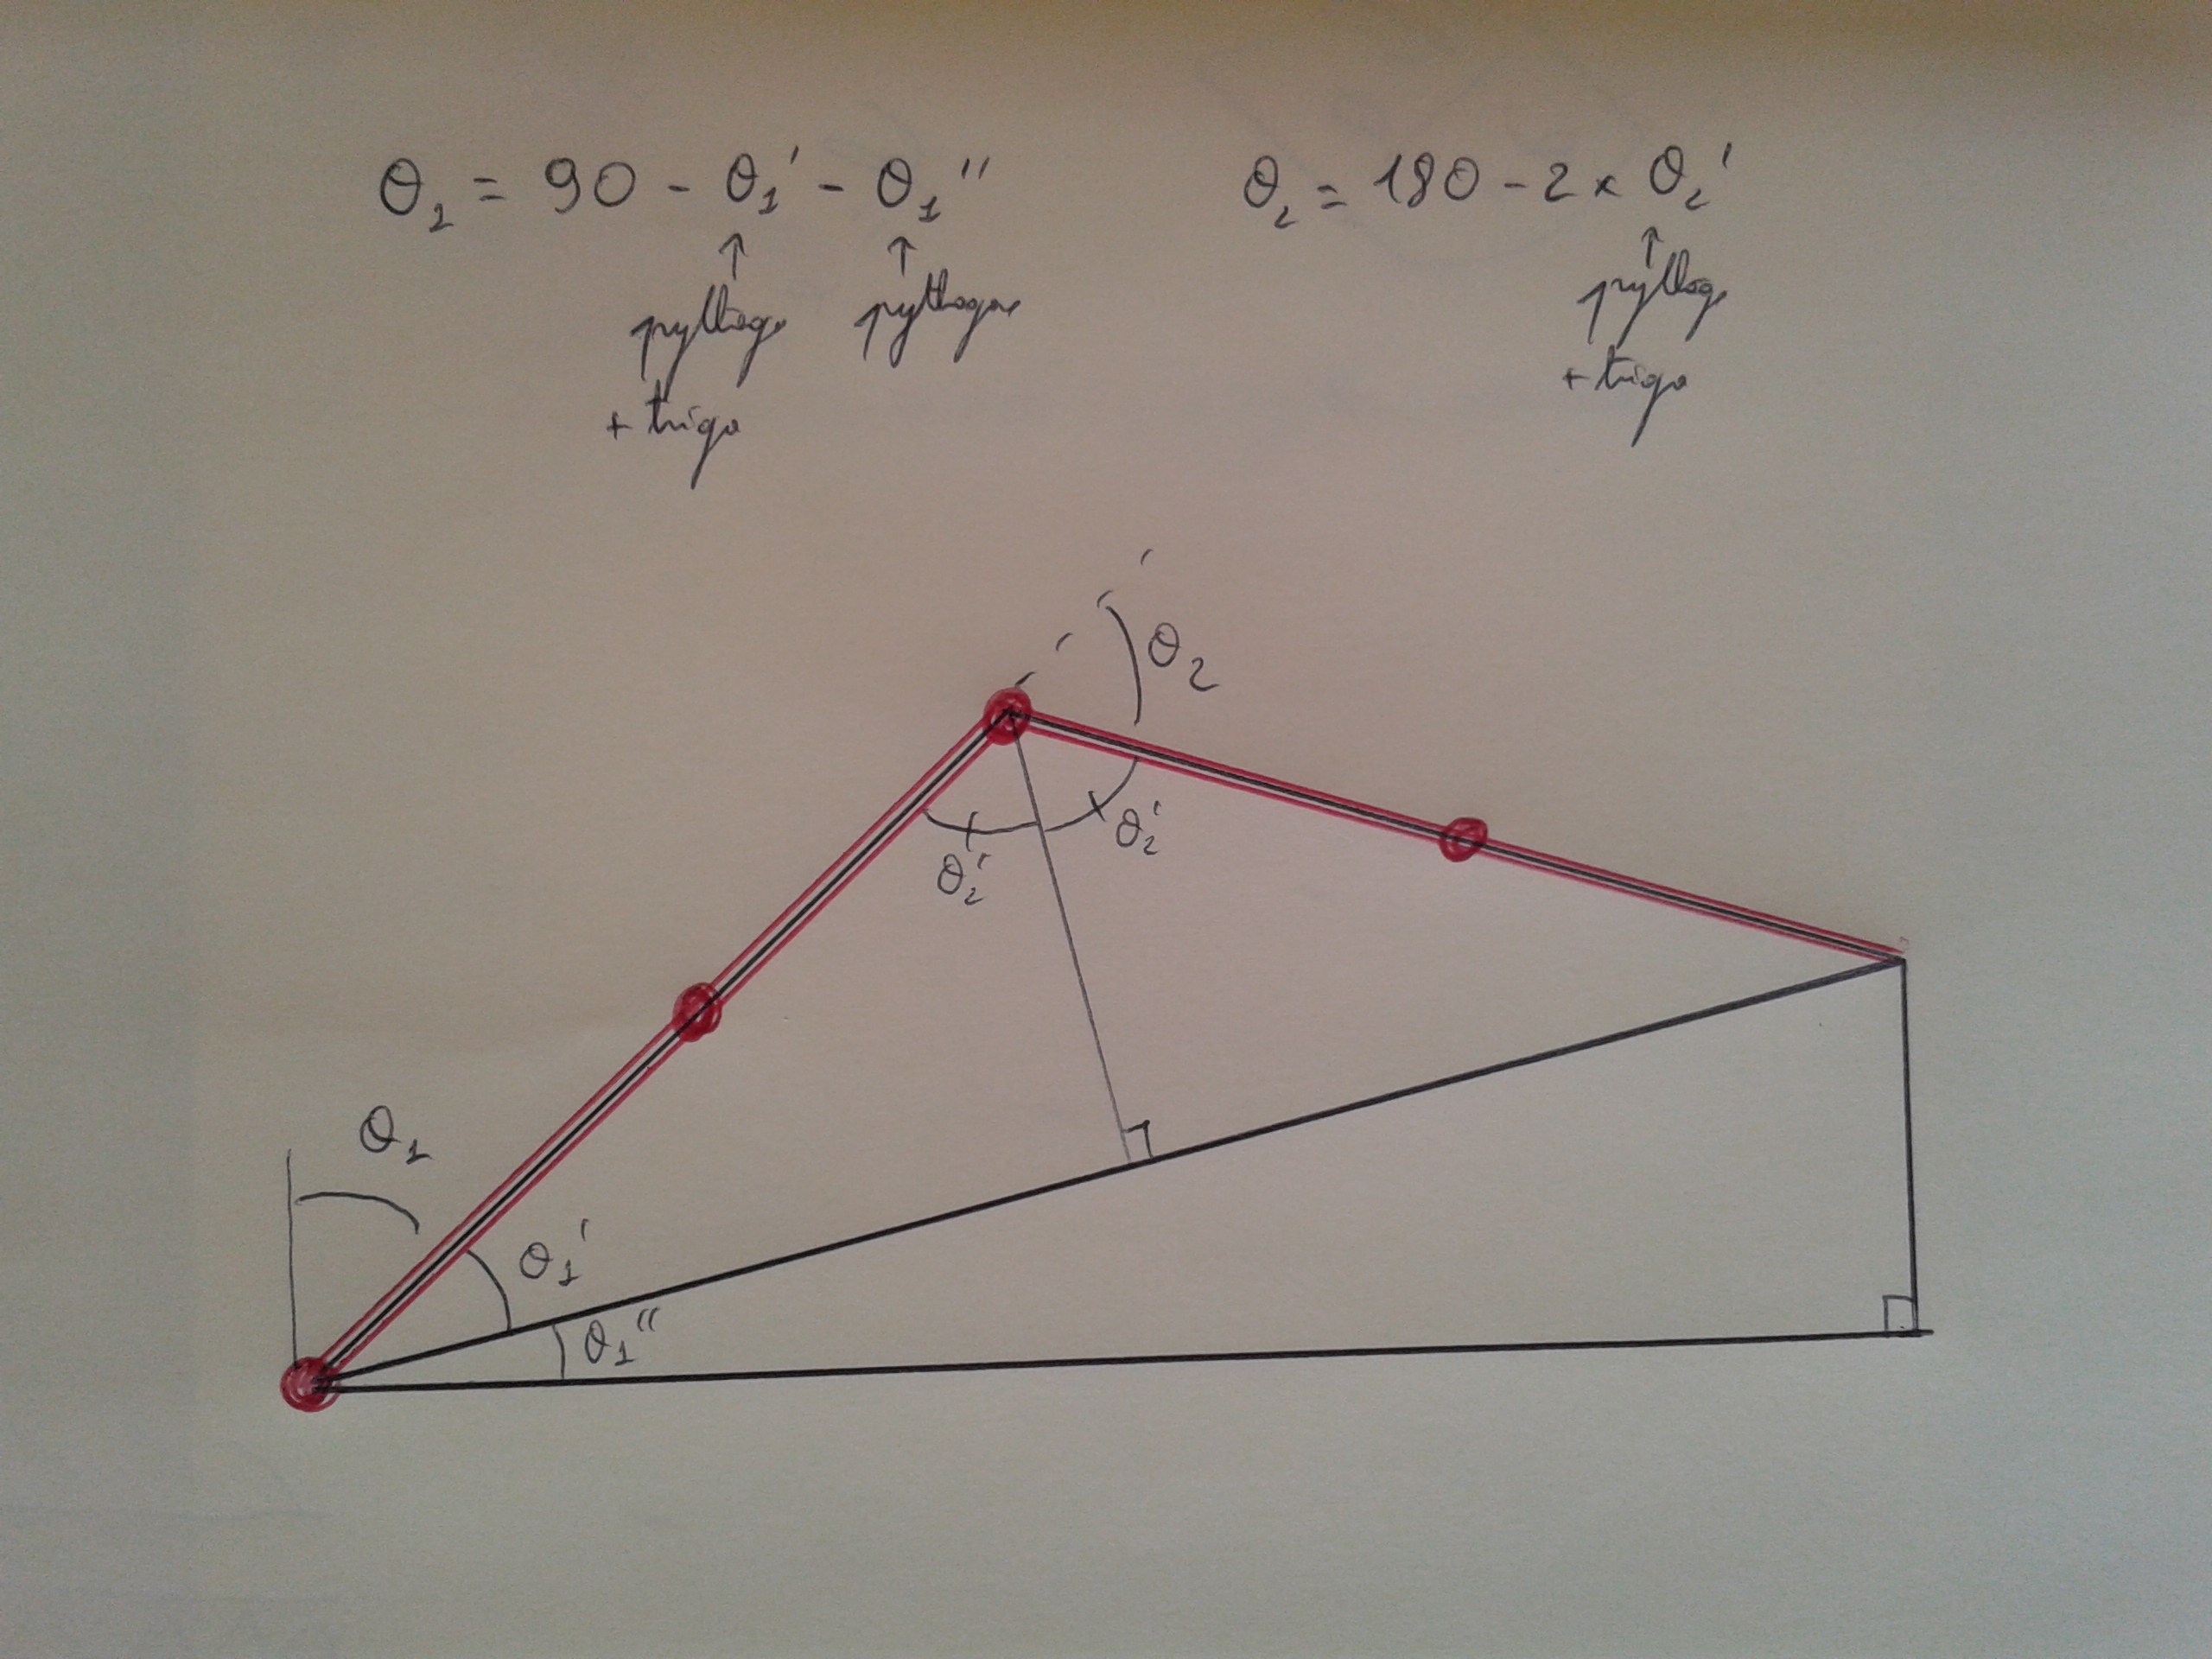 θ₁ = 90 - θ₁' - θ₁''
↑ ↑
pythago pythagore
+ trigo
θ₂ = 180 - 2 × θ₂'
↑
pythag
+ trigo
θ₂
θ₂' θ₂'
θ₁
θ₁'
θ₁''